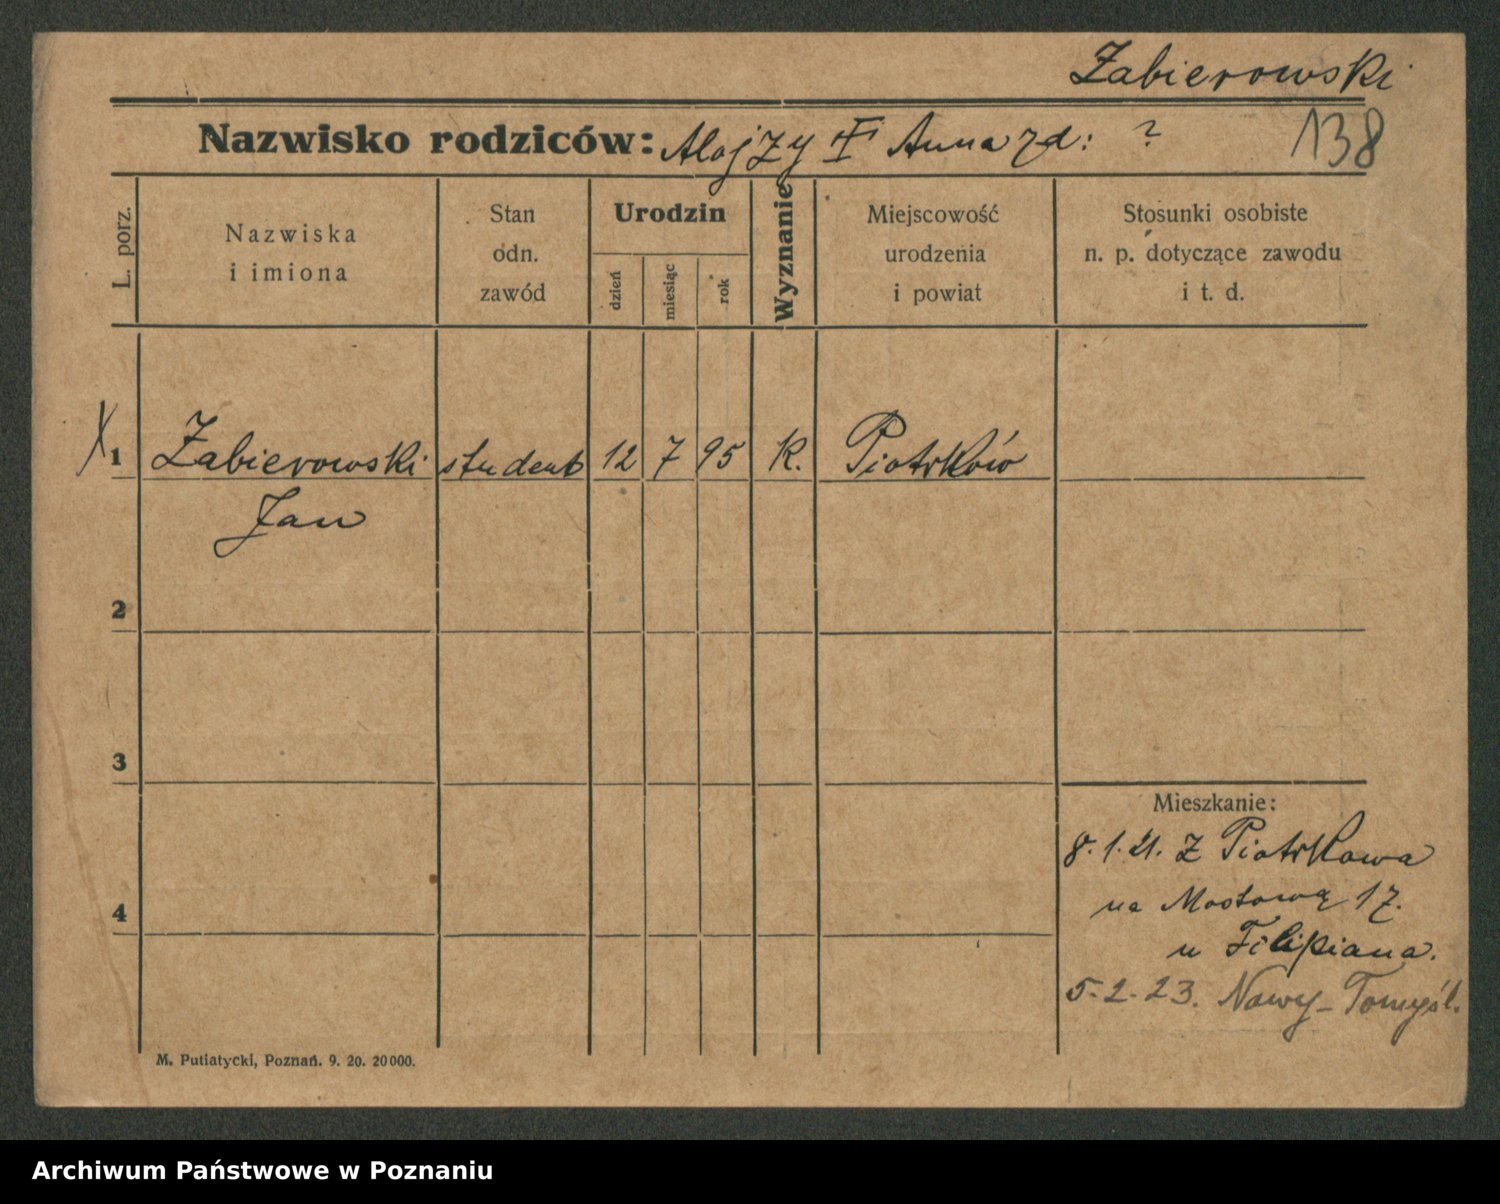 Zabierowski
Nazwisko rodziców: Alojzy i Anna zd: ?
138
L. porz.
Nazwiska
i imiona
Stan
odn.
zawód
Urodzin
dzień
miesiąc
rok
Wyznanie
Miejscowość
urodzenia
i powiat
Stosunki osobiste
n. p. dotyczące zawodu
i t. d.
X 1 Zabierowski student 12 7 95 K. Piotrków
Jan
2
3
4
Mieszkanie:
8.1.21. z Piotrkowa
na Mostową 17.
u Filipiana.
5-2-23. Nowy-Tomyśl.
M. Putiatycki, Poznań. 9. 20. 20000.
Archiwum Państwowe w Poznaniu